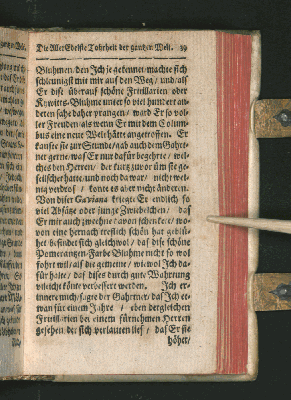 Die AllerEdelste Tohrheit der gantzen Welt. 39
Bluhmen/den Ich je gekennet/machte sich
schleunigst mit mir auf den Weg/und/als
Er dise überaus schöne Fritillarien oder
Kywitz-Bluhme unter so viel hundert an-
deren sahe daher prangen/ward Er so vol-
ler Freuden/als wenn Er mit dem Colum-
bus eine neue Welt hätte angetroffen. Er
kaufte sie zur Stunde/gab auch dem Gahrt-
ner gerne/was Er nur dafür begehrte/wel-
ches den Herren/der kurtz zuvor üm sie ge-
feilschet hatte/und noch da war/nicht we-
nig verdroß/konte es aber nicht änderen.
Von diser Gaviana kriegte Er endlich so
viel Absätze oder junge Zwiebelchen/daß
Er mir auch zwo davon schenkete/wo-
von eine hernach trefflich schön hat geblü-
het/befindet sich gleichwol/daß dise schöne
Pomerantzen-Farbe Bluhme nicht so wol
fohrt wil/als die gemeine/wiewol Ich da-
für halte/daß dises durch gute Wahrtung
vieleicht könte verbessert werden. Ich er-
innere mich/sagte der Gahrtner/daß Ich et-
wan für einem Jahre/eben dergleichen
Fritillarien bei einem fürnehmen Herren
gesehen/der sich verlauten ließ/daß Er sie
höher/